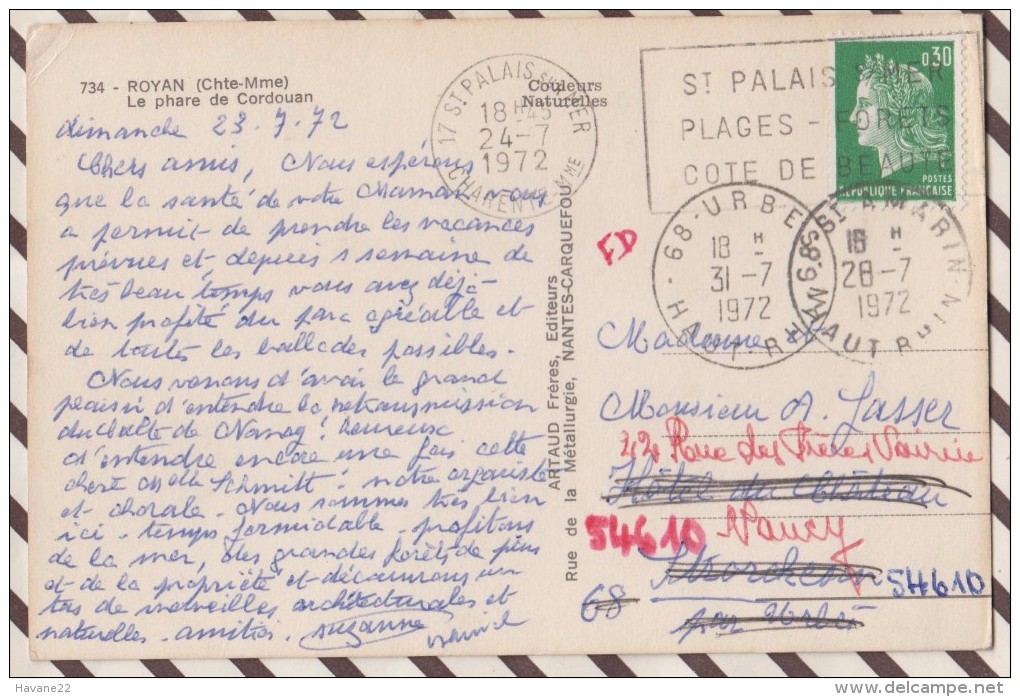 734 - ROYAN (Chte-Mme)
Le phare de Cordouan
Couleurs
Naturelles
dimanche 23.7.72
Chers amis, Nous espérons
que la santé de votre Maman vous
a permit de prendre les vacances
prévues et, depuis 1 semaine de
très beau temps vous avez déjà
bien profité du parc agréable et
de toutes les ballades possibles.
Nous venons d'avoir le grand
plaisir d'entendre la retransmission
du culte de Nancy! heureux
d'entendre encore une fois cette
chère Melle Schmitt! notre organiste
et chorale. Nous sommes très bien
ici. temps formidable. profitons
de la mer, des grandes forêts de pins
et de la propriété et découvrons un
tas de merveilles architecturales et
naturelles. amitiés. Suzanne
ARTAUD Frères, Editeurs
Rue de la Métallurgie, NANTES-CARQUEFOU
17 ST PALAIS SUR MER
18 H 45
24-7
1972
CHARENTE-MME
ST PALAIS S/MER
PLAGES - FORETS
COTE DE BEAUTE
0,30
POSTES
REPUBLIQUE FRANÇAISE
68-URBES
18 H
31-7
1972
HAUT-RHIN
68 ST AMARIN
18 H
28-7
1972
HAUT RHIN
FD
Madame &
Monsieur A. Jasser
22 Rue des Frères Voirin
Hôtel du Château
54610 Nancy
54610
68
par Urbès
Havane22